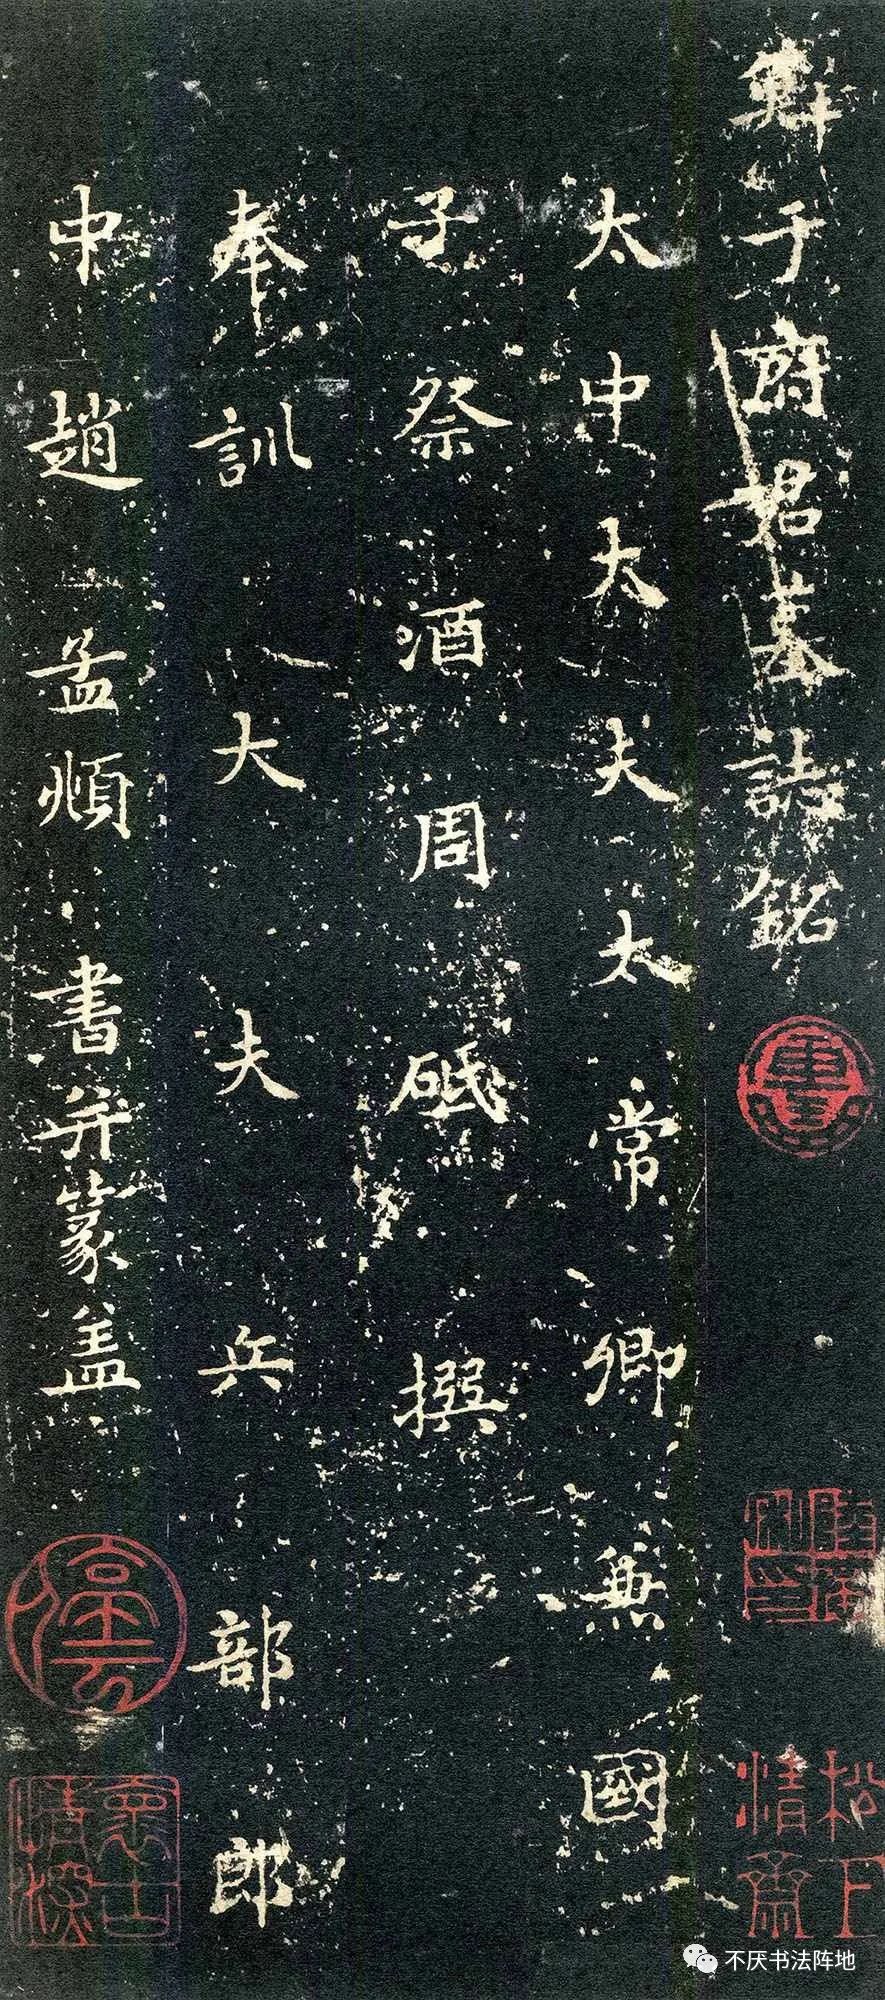 鮮于府君墓誌銘
太中大夫太常卿兼國
子祭酒周砥撰
奉訓大夫兵部郎
中趙孟頫書并篆盖
松下清齋
懷古情深
不厌书法阵地